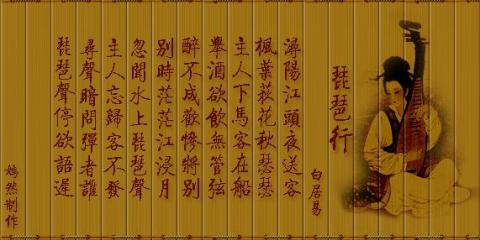 琵琶行
白居易
潯陽江頭夜送客
楓葉荻花秋瑟瑟
主人下馬客在船
舉酒欲飲無管弦
醉不成歡慘將別
別時茫茫江浸月
忽聞水上琵琶聲
主人忘歸客不發
尋聲暗問彈者誰
琵琶聲停欲語遲
嫣然制作